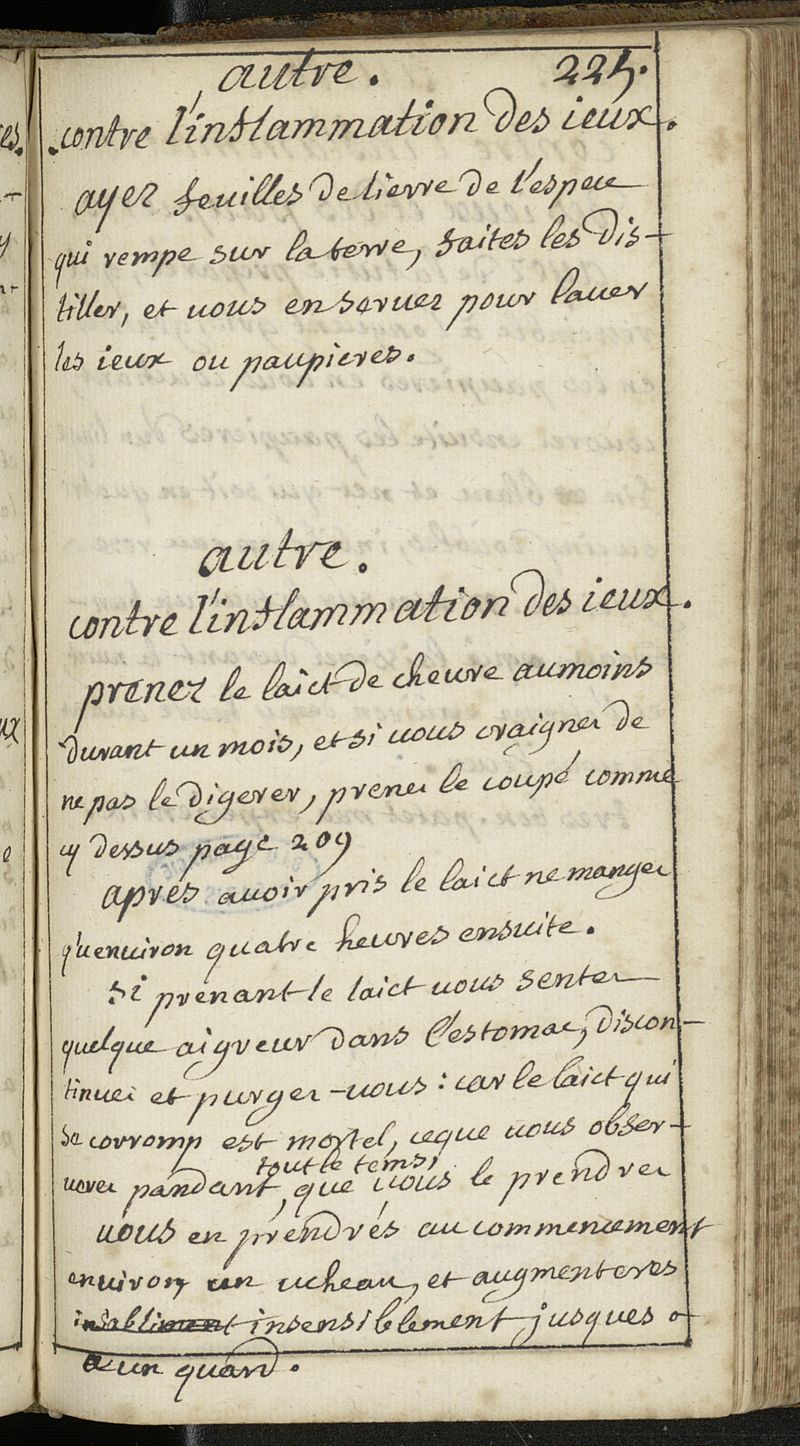 autre. 225.
contre l'inflammation des ieux.
ayez feuilles de lierre de l'espece
qui rempe sur la terre, faites les dis-
tiller, et vous en servez pour laver
les ieux ou paupieres.
autre.
contre l'inflammation des ieux.
prenez le laict de cheure aumoins
durant un mois, et si vous craignez de
ne pas le digerer, prenez le coupé comme
cy dessus page 209
aprés avoir pris le laict ne mangez
qu'environ quatre heures ensuite.
si prenant le laict vous sentez
quelque aigreur dans l'estomac, discon-
tinuez et purgez-vous: car le laict qui
se corromp est mortel, ceque vous obser-
verez pandant, tout le tems, que vous le prendrez
vous en prendrés au commencement
environ un ucheau, et augmenterés
insensiblement jusques a
a un quard.